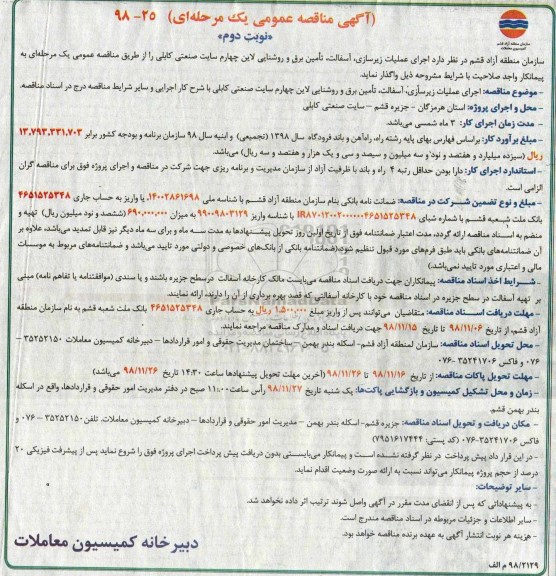 (آگهی مناقصه عمومی یک مرحله‌ای) ۲۵- ۹۸
«نوبت دوم»
سازمان منطقه آزاد قشم
کمیسیون معاملات
سازمان منطقه آزاد قشم در نظر دارد اجرای عملیات زیرسازی، آسفالت، تأمین برق و روشنایی لاین چهارم سایت صنعتی کابلی را از طریق مناقصه عمومی یک مرحله‌ای به
پیمانکار واجد صلاحیت با شرایط مشروحه ذیل واگذار نماید.
- موضوع مناقصه: اجرای عملیات زیرسازی، آسفالت، تأمین برق و روشنایی لاین چهارم سایت صنعتی کابلی با شرح کار اجرایی و سایر شرایط مناقصه درج در اسناد مناقصه.
- محل و اجرای پروژه: استان هرمزگان - جزیره قشم - سایت صنعتی کابلی
- مدت زمان اجرای کار: ۳ ماه شمسی می‌باشد.
- مبلغ برآورد کار: براساس فهارس بهای پایه رشته راه، راه‌آهن و باند فرودگاه سال ۱۳۹۸ (تجمیعی) و ابنیه سال ۹۸ سازمان برنامه و بودجه کشور برابر ۱۳,۷۹۳,۳۳۱,۷۰۳
ریال (سیزده میلیارد و هفتصد و نود و سه میلیون و سیصد و سی و یک هزار و هفتصد و سه ریال) می‌باشد.
- استاندارد اجرای کار: دارا بودن حداقل رتبه ۴ راه و باند با ظرفیت آزاد از سازمان مدیریت و برنامه ریزی جهت شرکت در مناقصه و اجرای پروژه فوق برای مناقصه گران
الزامی است.
- مبلغ و نوع تضمین شرکت در مناقصه: ضمانت نامه بانکی بنام سازمان منطقه آزاد قشم با شناسه ملی ۱۴۰۰۲۸۶۱۶۹۸ یا واریز به حساب جاری ۴۶۵۱۵۲۵۳۴۸
بانک ملت شعبه قشم با شماره شبای IR۸۷۰۱۲۰۰۲۰۰۰۰۰۴۶۵۱۵۲۵۳۴۸ با شناسه واریز ۹۹۰۰۹۸۰۳۱۲۹ به میزان ۶۹۰,۰۰۰,۰۰۰ (ششصد و نود میلیون ریال) تهیه و
منضم به اسناد مناقصه ارائه گردد، مدت اعتبار ضمانتنامه فوق از تاریخ اولین روز تحویل پیشنهادها به مدت سه ماه و برای سه ماه دیگر نیز قابل تمدید می‌باشد، علاوه بر
آن ضمانتنامه‌های بانکی باید طبق فرم‌های مورد قبول تنظیم شود(ضمانتنامه بانکی از بانک‌های خصوصی و دولتی مورد تایید می‌باشد و ضمانتنامه‌های مربوط به موسسات
مالی و اعتباری مورد تایید نمی‌باشد)
- شرایط اخذ اسناد مناقصه: پیمانکاران جهت دریافت اسناد مناقصه می‌بایست مالک کارخانه آسفالت درسطح جزیره باشند و یا سندی (موافقتنامه یا تفاهم نامه) مبنی
بر تهیه آسفالت در سطح جزیره در اسناد مناقصه خود با کارخانه آسفالتی که قصد بهره برداری از آن را دارند، ارائه نمایند.
- مهلت دریافت اسناد مناقصه: متقاضیان می‌توانند پس از واریز مبلغ ۱,۵۰۰,۰۰۰ ریال به حساب جاری ۴۶۵۱۵۲۵۳۴۸ بانک ملت شعبه قشم به نام سازمان منطقه
آزاد قشم، از تاریخ ۹۸/۱۱/۰۶ تا تاریخ ۹۸/۱۱/۱۵ جهت دریافت اسناد و مدارک مناقصه مراجعه نمایند.
- محل تحویل اسناد مناقصه: سازمان منطقه آزاد قشم- اسکله بندر بهمن - ساختمان مدیریت حقوقی و امور قراردادها - دبیرخانه کمیسیون معاملات ۳۵۲۵۲۱۵۰
- ۰۷۶ و فاکس ۳۵۲۴۱۷۰۶ -۰۷۶
- مهلت تحویل پاکات مناقصه: از تاریخ ۹۸/۱۱/۱۶ تا ۹۸/۱۱/۲۶ (آخرین مهلت تحویل پیشنهادها ساعت ۱۴:۳۰ تاریخ ۹۸/۱۱/۲۶ می‌باشد)
- زمان و محل تشکیل کمیسیون و بازگشایی پاکت‌ها: یک شنبه تاریخ ۹۸/۱۱/۲۷ رأس ساعت ۱۱:۰۰ صبح در دفتر مدیریت امور حقوقی و قراردادها، واقع در اسکله
بندر بهمن قشم.
- مکان دریافت و تحویل اسناد مناقصه: جزیره قشم- اسکله بندر بهمن - مدیریت امور حقوقی و قراردادها - دبیرخانه کمیسیون معاملات. تلفن ۳۵۲۵۲۱۵۰ - ۰۷۶ و
فاکس ۳۵۲۴۱۷۰۶-۰۷۶ (کد پستی: ۷۹۵۱۶۱۷۴۴۴)
- در این قرار داد پیش پرداخت در نظر گرفته نشده است و پیمانکار می‌بایستی بدون دریافت پیش پرداخت اجرای پروژه فوق را شروع نماید پس از پیشرفت فیزیکی ۲۰
درصد از حجم پروژه پیمانکار می‌تواند نسبت به ارائه صورت وضعیت اقدام نماید.
- سایر توضیحات:
- به پیشنهاداتی که پس از انقضای مدت مقرر در آگهی واصل شوند ترتیب اثر داده نخواهد شد.
- سایر اطلاعات و جزئیات مربوطه در اسناد مناقصه مندرج است.
- هزینه هر نوبت انتشار آگهی به عهده برنده مناقصه خواهد بود.
دبیرخانه کمیسیون معاملات
۹۸/۲۱۲۹ م الف